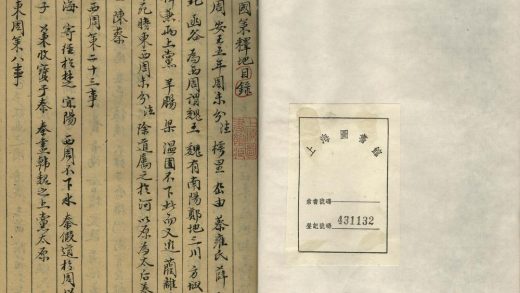 上海圖書館
索書號碼
登記號碼 431132
國策釋地目錄
周 安王五年周未分注 樗里 厹由 蔡 雍氏 薛
北 函谷 為西周謂魏王 魏有南陽鄭地三川 方城
何兼兩上黨 羊腸 梁 溫囿不下此而又近 藺離
東西周未分注 除道屬之於河 以原為太后養
陳蔡
西周策二十三事
海 寄徑於楚 宜陽 西周不下水 秦假道於周以
子 東收寶于秦 秦盡韓魏之上黨太原
東周策八事